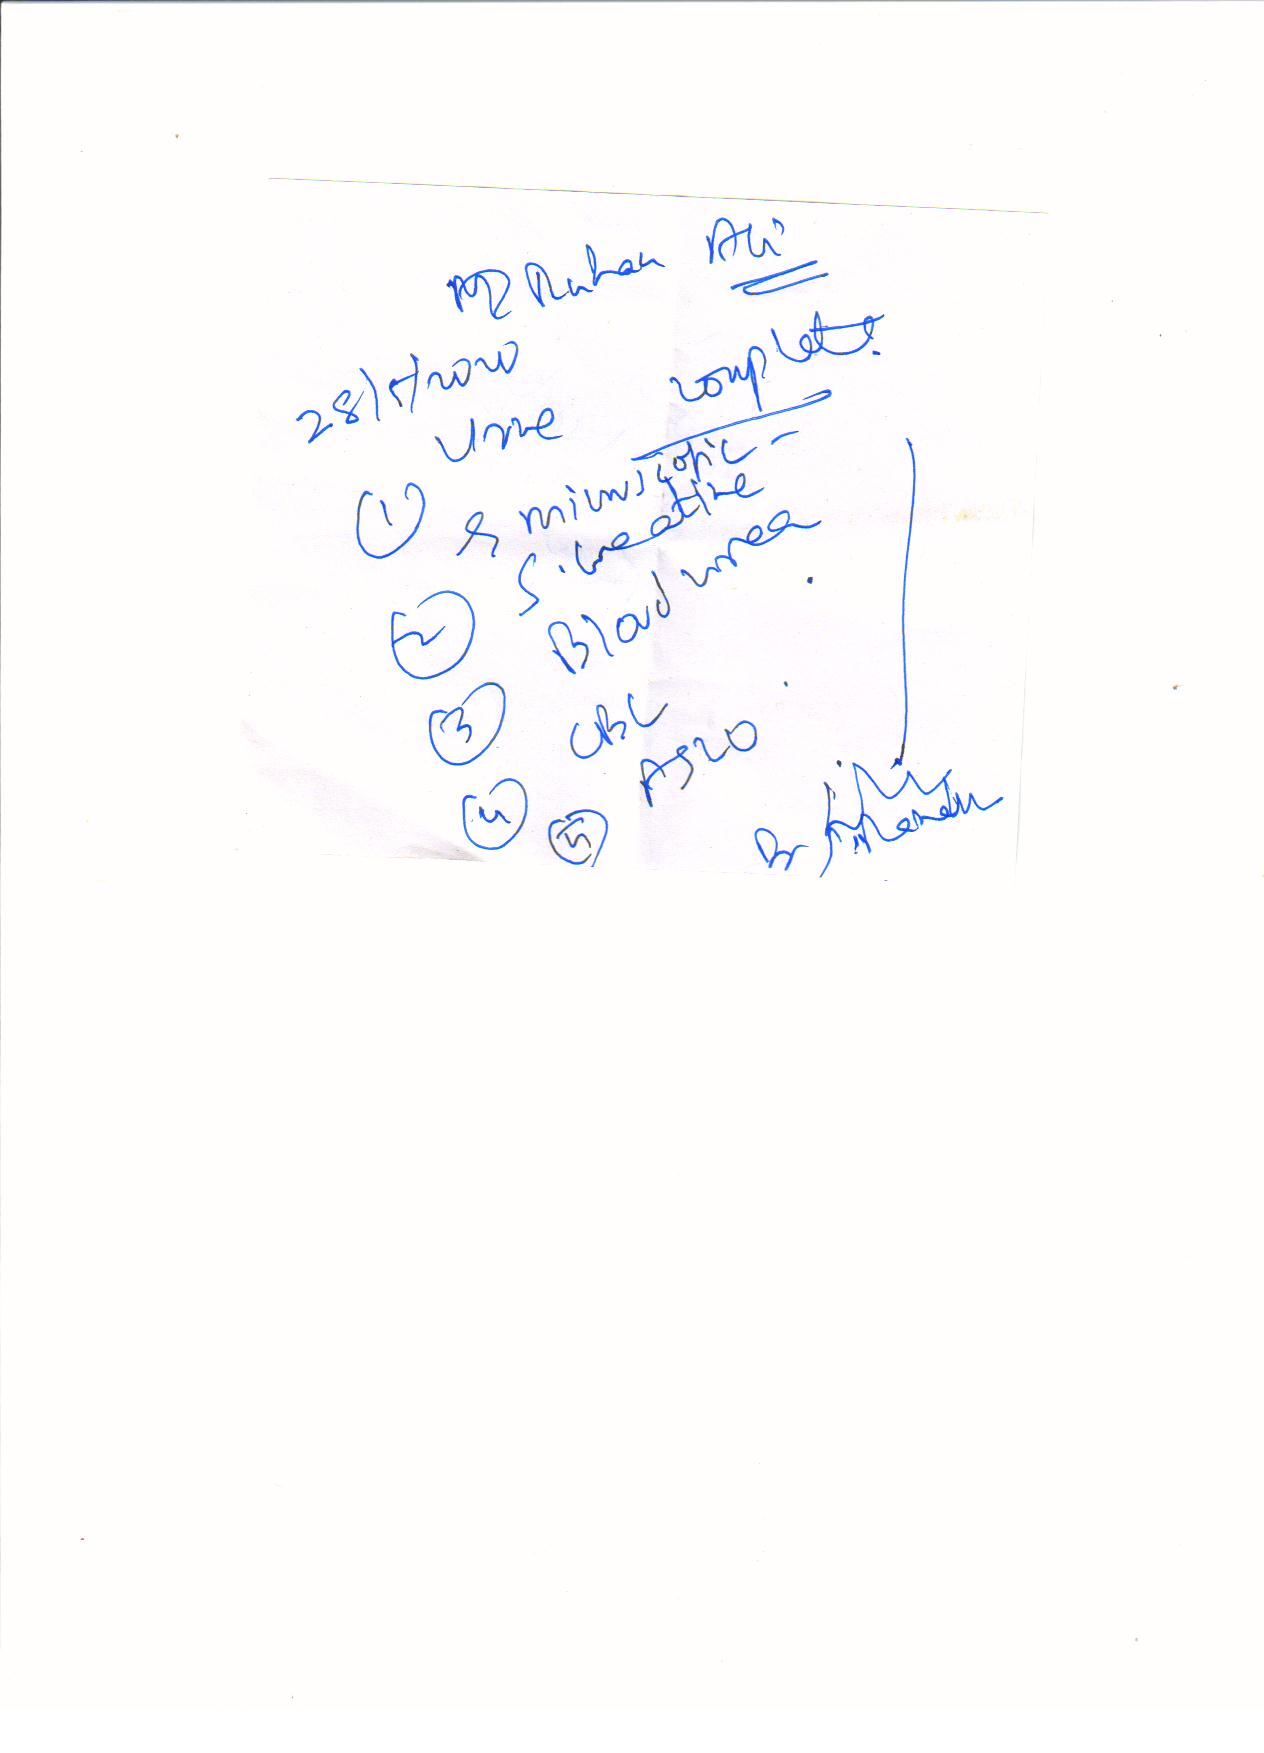 Md Ruhan Ali
28/5/2020
① Urine complete
& microscopic -
② S. creatine
③ Blood urea
④ CBC
⑤ ASLO
Dr